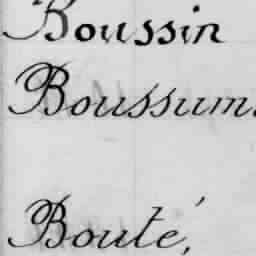 Boussin
Boussum.
Bouté,